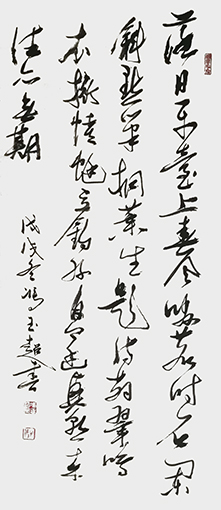 落日平臺上春風啜茗時石闌
斜點筆桐葉坐題詩翡翠鳴
衣桁蜻蜓立釣絲自今幽興熟來
往亦無期
戊戌冬馮玉超書